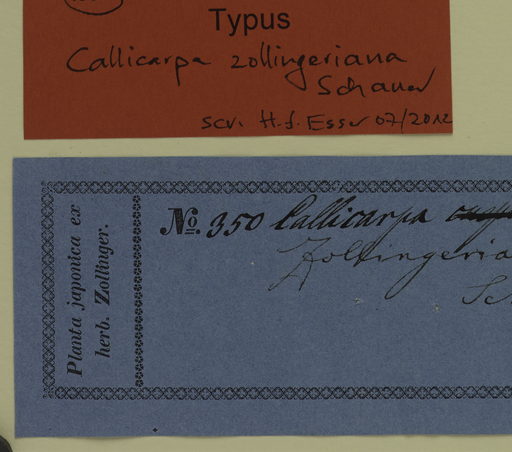 Typus
Callicarpa zollingeriana
Schauer
scr. H.-J. Esser 07/2012
Planta japonica ex
herb. Zollinger.
No. 350 Callicarpa
Zollingeria
Sc